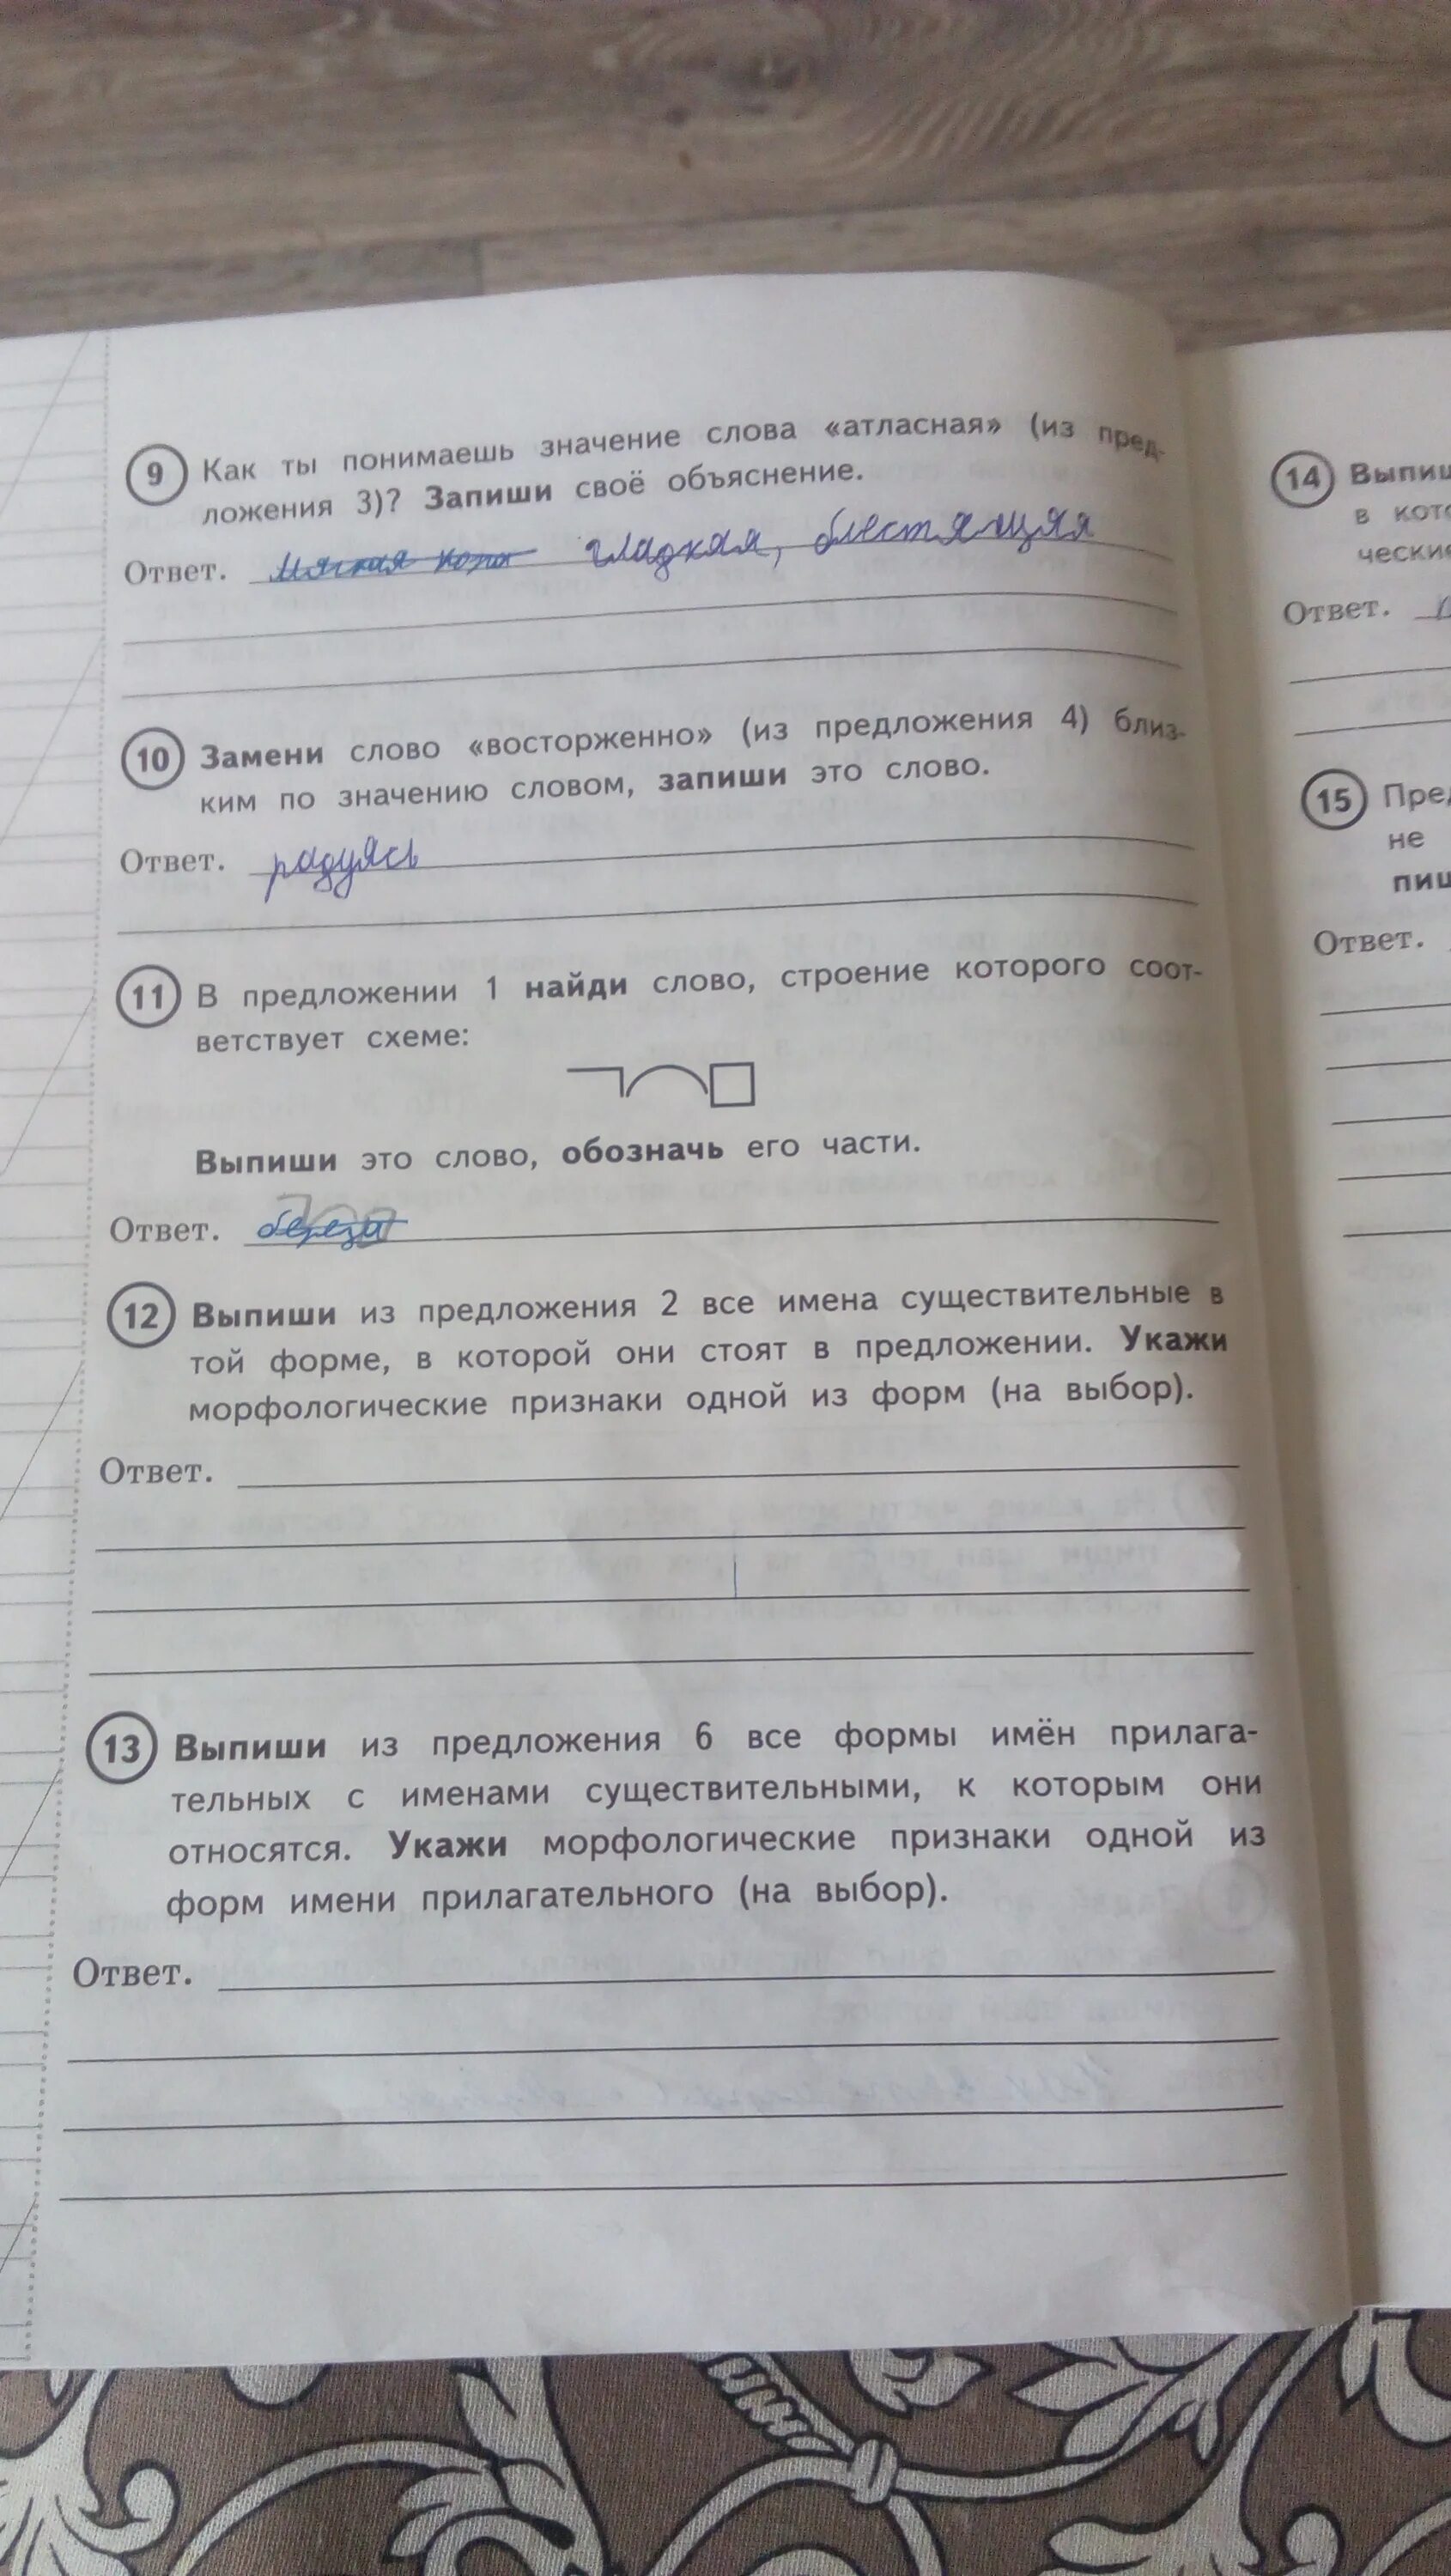 9 Как ты понимаешь значение слова «атласная» (из пред-
ложения 3)? Запиши своё объяснение.
Ответ. мягкая кожа гладкая, блестящяя
10 Замени слово «восторженно» (из предложения 4) близ-
ким по значению словом, запиши это слово.
Ответ. радуясь
11 В предложении 1 найди слово, строение которого соот-
ветствует схеме:
Выпиши это слово, обозначь его части.
Ответ. береза
12 Выпиши из предложения 2 все имена существительные в
той форме, в которой они стоят в предложении. Укажи
морфологические признаки одной из форм (на выбор).
Ответ.
13 Выпиши из предложения 6 все формы имён прилага-
тельных с именами существительными, к которым они
относятся. Укажи морфологические признаки одной из
форм имени прилагательного (на выбор).
Ответ.
14 Выпиш
в кото
ческие
Ответ.
15 Пред
не
пиш
Ответ.